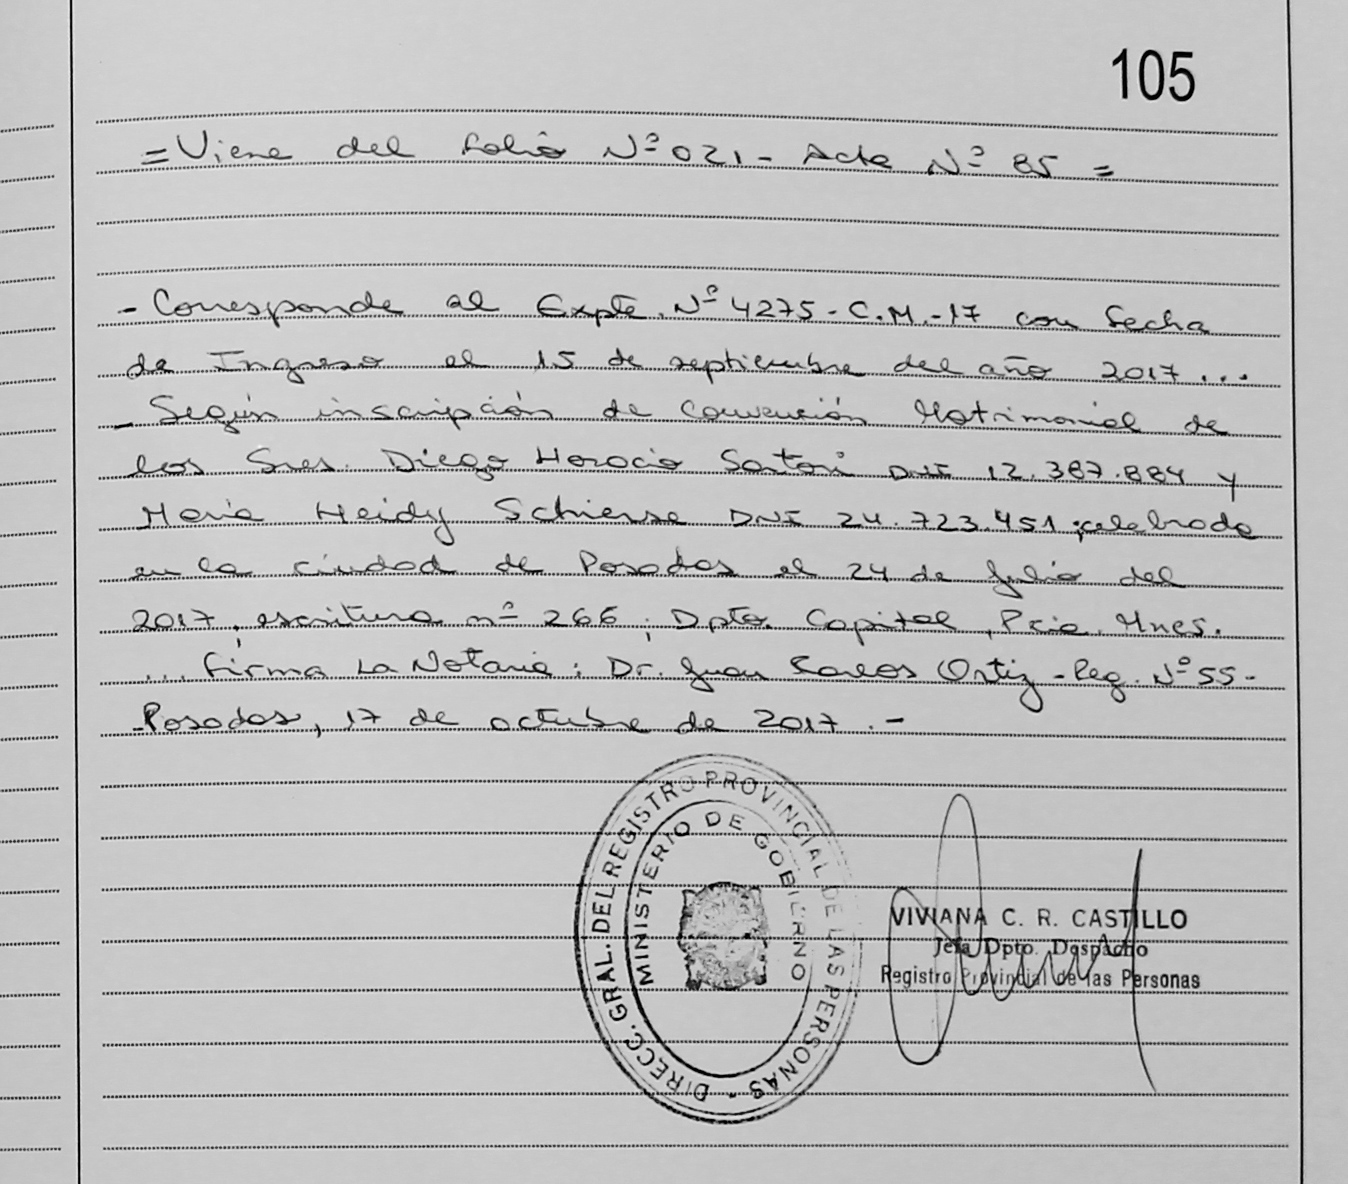 105
= Viene del folio Nº 021 - Acta Nº 85 =
- Corresponde al Expte. Nº 4275 - C.M. - 17 con fecha
de Ingreso el 15 de septiembre del año 2017 ...
- Según inscripción de Convención Matrimonial de
los Sres. Diego Horacio Sartori DNI 12.387.884 y
Maria Heidy Schierse DNI 24.723.451 ; celebrada
en la ciudad de Posadas el 24 de Julio del
2017, escritura nº 266 ; Dpto. Capital, Pcia. Mnes.
... firma La Notaria : Dr. Juan Carlos Ortiz - Reg. Nº 55 -
- Posadas, 17 de octubre de 2017 . -
DIRECC. GRAL. DEL REGISTRO PROVINCIAL DE LAS PERSONAS -
MINISTERIO DE GOBIERNO
VIVIANA C. R. CASTILLO
Jefa Dpto. Despacho
Registro Provincial de las Personas